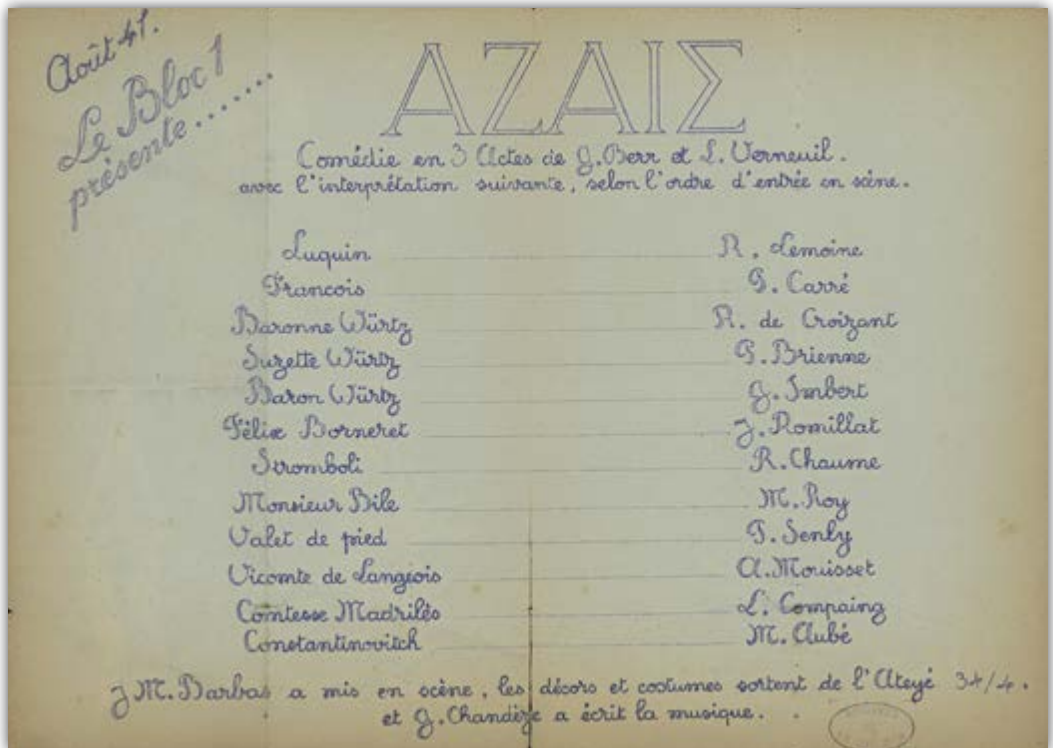 Août 41.
Le Bloc 1
présente.......
ΑΖΑΙΣ
Comédie en 3 Actes de G. Berr et L. Verneuil.
avec l'interprétation suivante, selon l'ordre d'entrée en scène.
Luquin R. Lemoine
Francois P. Carré
Baronne Würtz R. de Croizant
Suzette Würtz P. Brienne
Baron Würtz G. Imbert
Félix Borneret J. Romillat
Stromboli R. Chaume
Monsieur Bile M. Roy
Valet de pied P. Senly
Vicomte de Langeois A. Mouisset
Comtesse Madrilès L. Compaing
Constantinovitch M. Aubé
J M. Barbas a mis en scène, les décors et costumes sortent de l'Ateyé 34/4.
et G. Chandèze a écrit la musique.